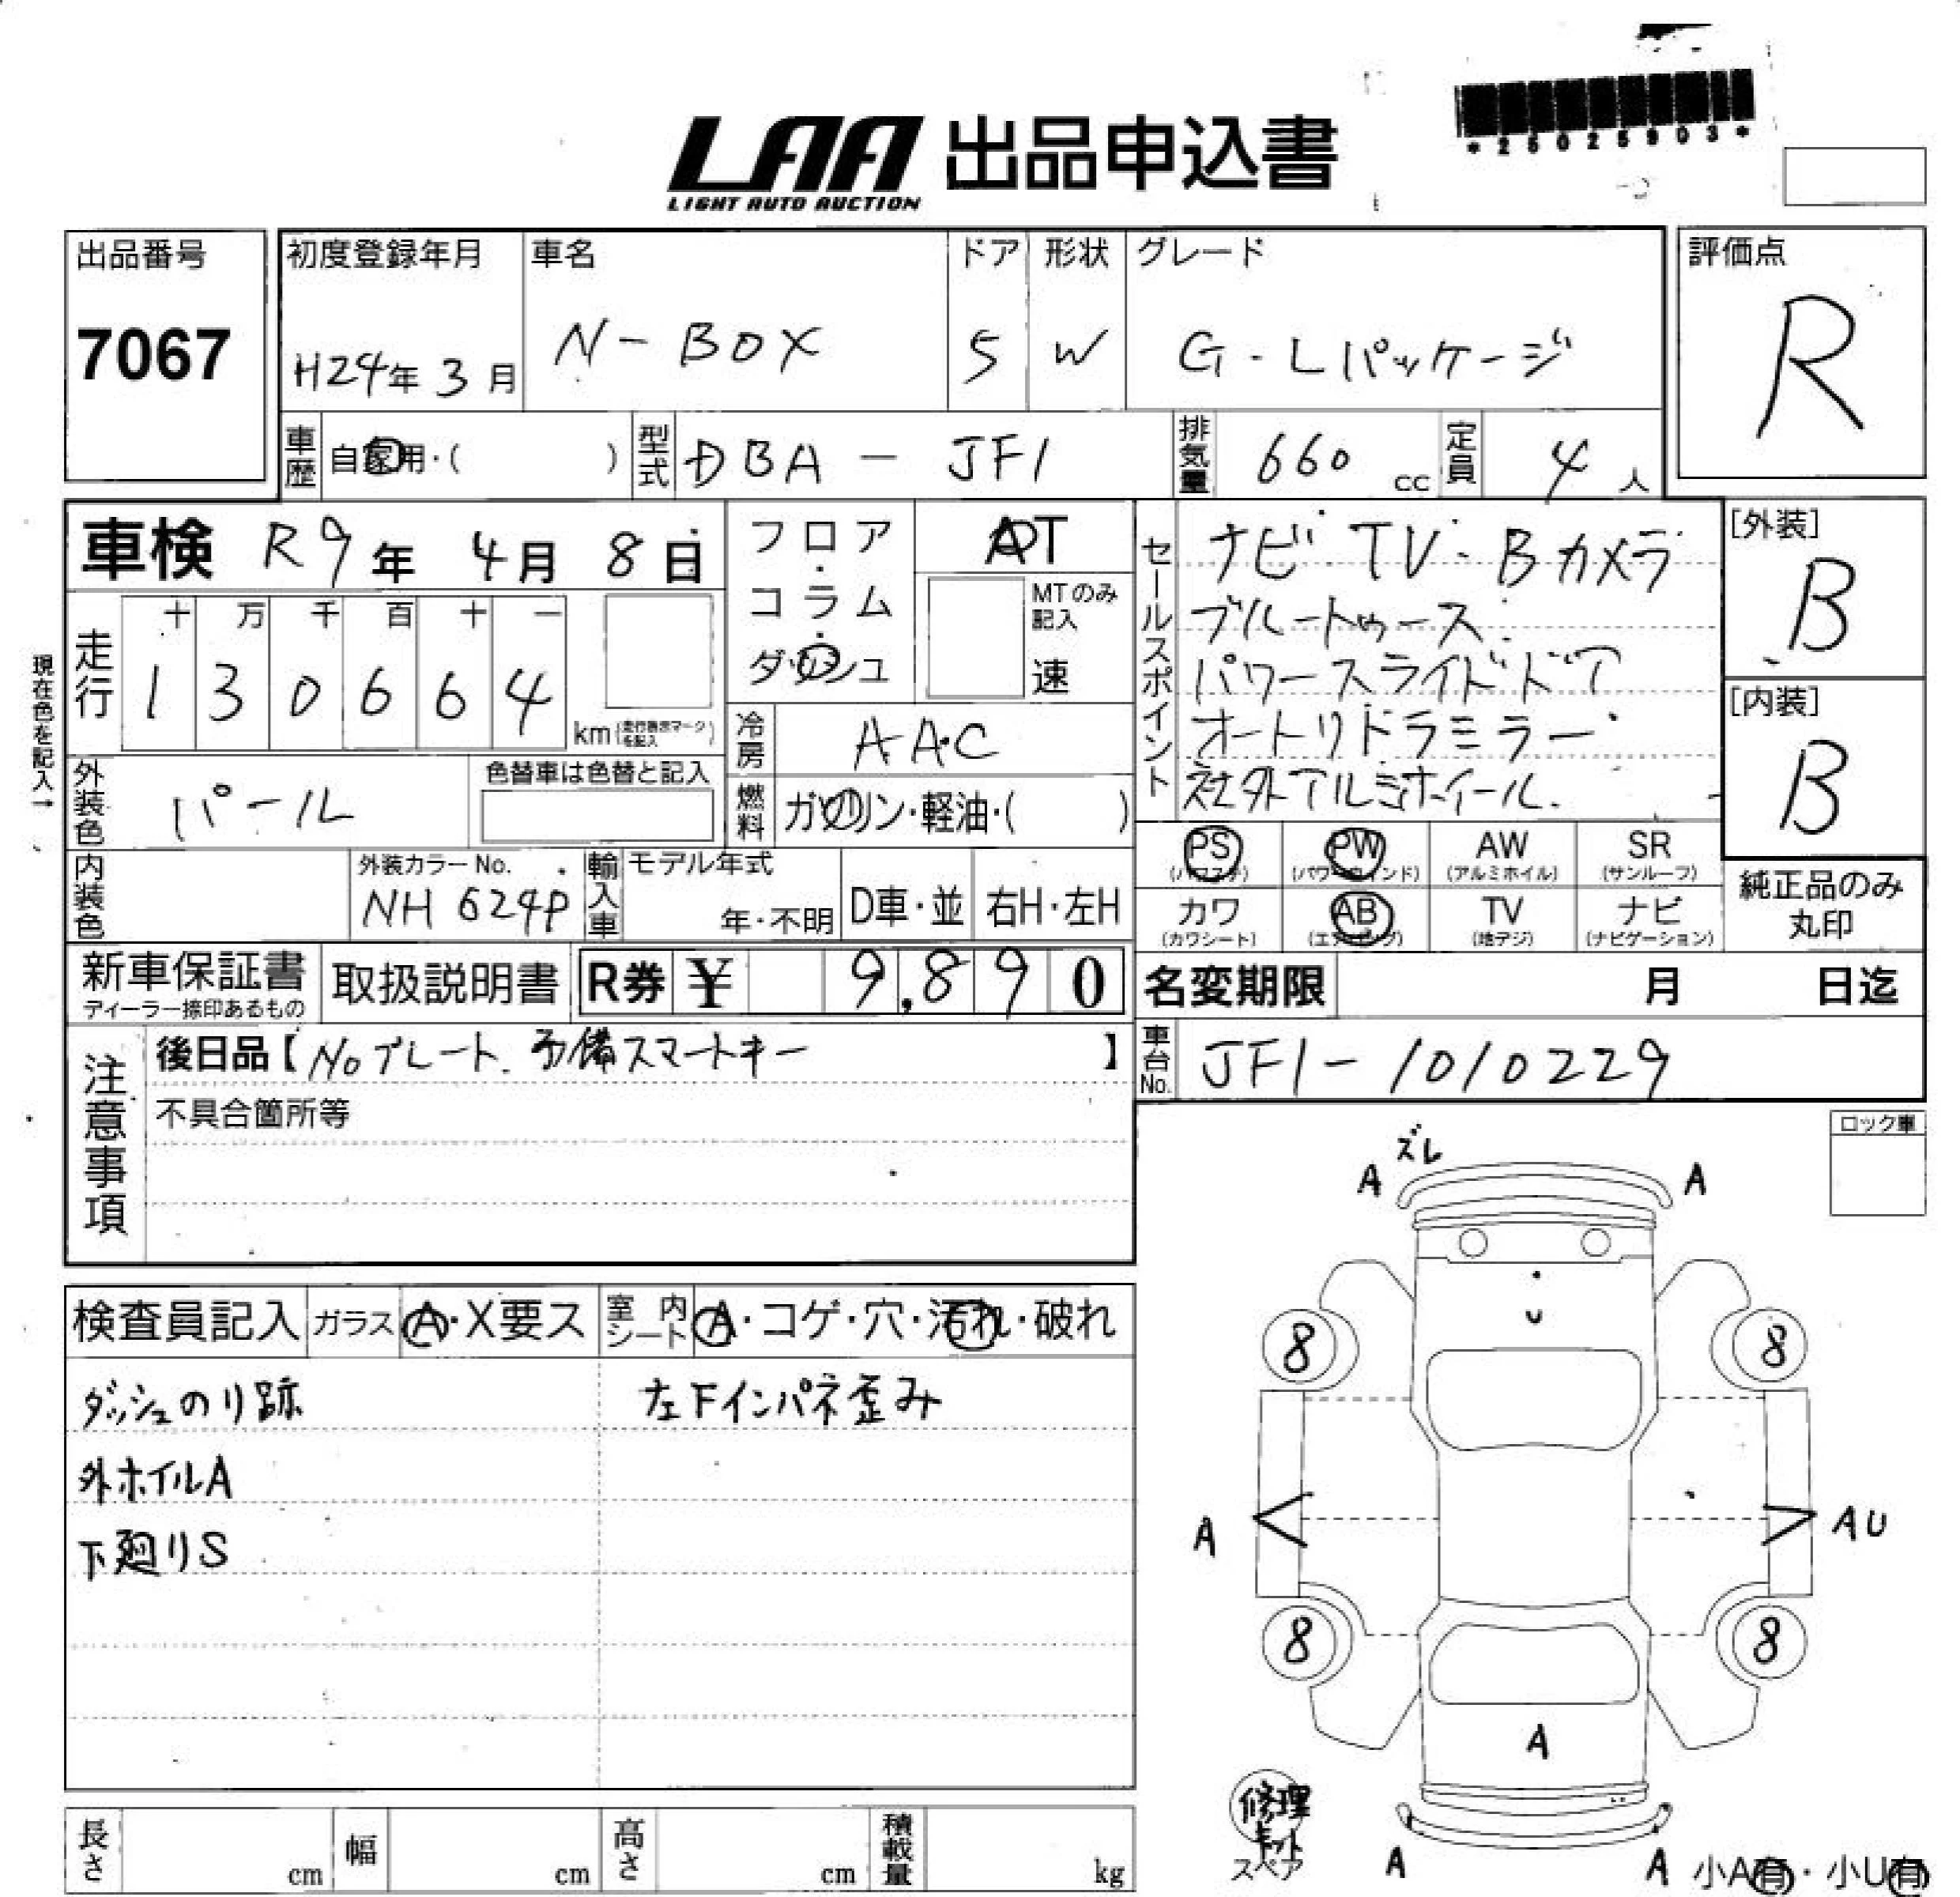 *25025903*
LAA 出品申込書
LIGHT AUTO AUCTION
出品番号
7067
初度登録年月
H24年 3月
車名
N-BOX
ドア
5
形状
W
グレード
G・Lパッケージ
評価点
R
車歴 自家用・( )
型式 DBA - JF1
排気量 660 cc
定員 4人
車検 R9年 4月 8日
フロア・コラム・ダッシュ
AT
MTのみ記入
速
走行
十 万 千 百 十 一
1 3 0 6 6 4
km(走行無表示マークを記入)
現在色を記入→
外装色 パール
色替車は色替と記入
冷房 AAC
燃料 ガソリン・軽油・( )
内装色
外装カラーNo.
NH624P
輸入車
モデル年式
年・不明
D車・並
右H・左H
セールスポイント
ナビ・TV・Bカメラ
ブルートゥース
パワースライドドア
オートリドラミラー
社外アルミホイール.
[外装]
B
[内装]
B
PS (パワステ)
PW (パワーウインド)
AW (アルミホイル)
SR (サンルーフ)
カワ (カワシート)
AB (エアバッグ)
TV (地デジ)
ナビ (ナビゲーション)
純正品のみ丸印
新車保証書
ディーラー捺印あるもの
取扱説明書
R券 ¥ 9,890
名変期限 月 日迄
車台No. JF1-1010229
注意事項
後日品【Noプレート. 予備スマートキー】
不具合箇所等
ロック車
検査員記入
ガラス A・X要ス
室内シート A・コゲ・穴・汚れ・破れ
ダッシュのり跡
左下インパネ歪み
外ホイルA
下廻りS
ズレ
A A
U
8 8
A AU
8 8
A
修理キット
スペア
A A
小A有・小U有
長さ cm
幅 cm
高さ cm
積載量 kg